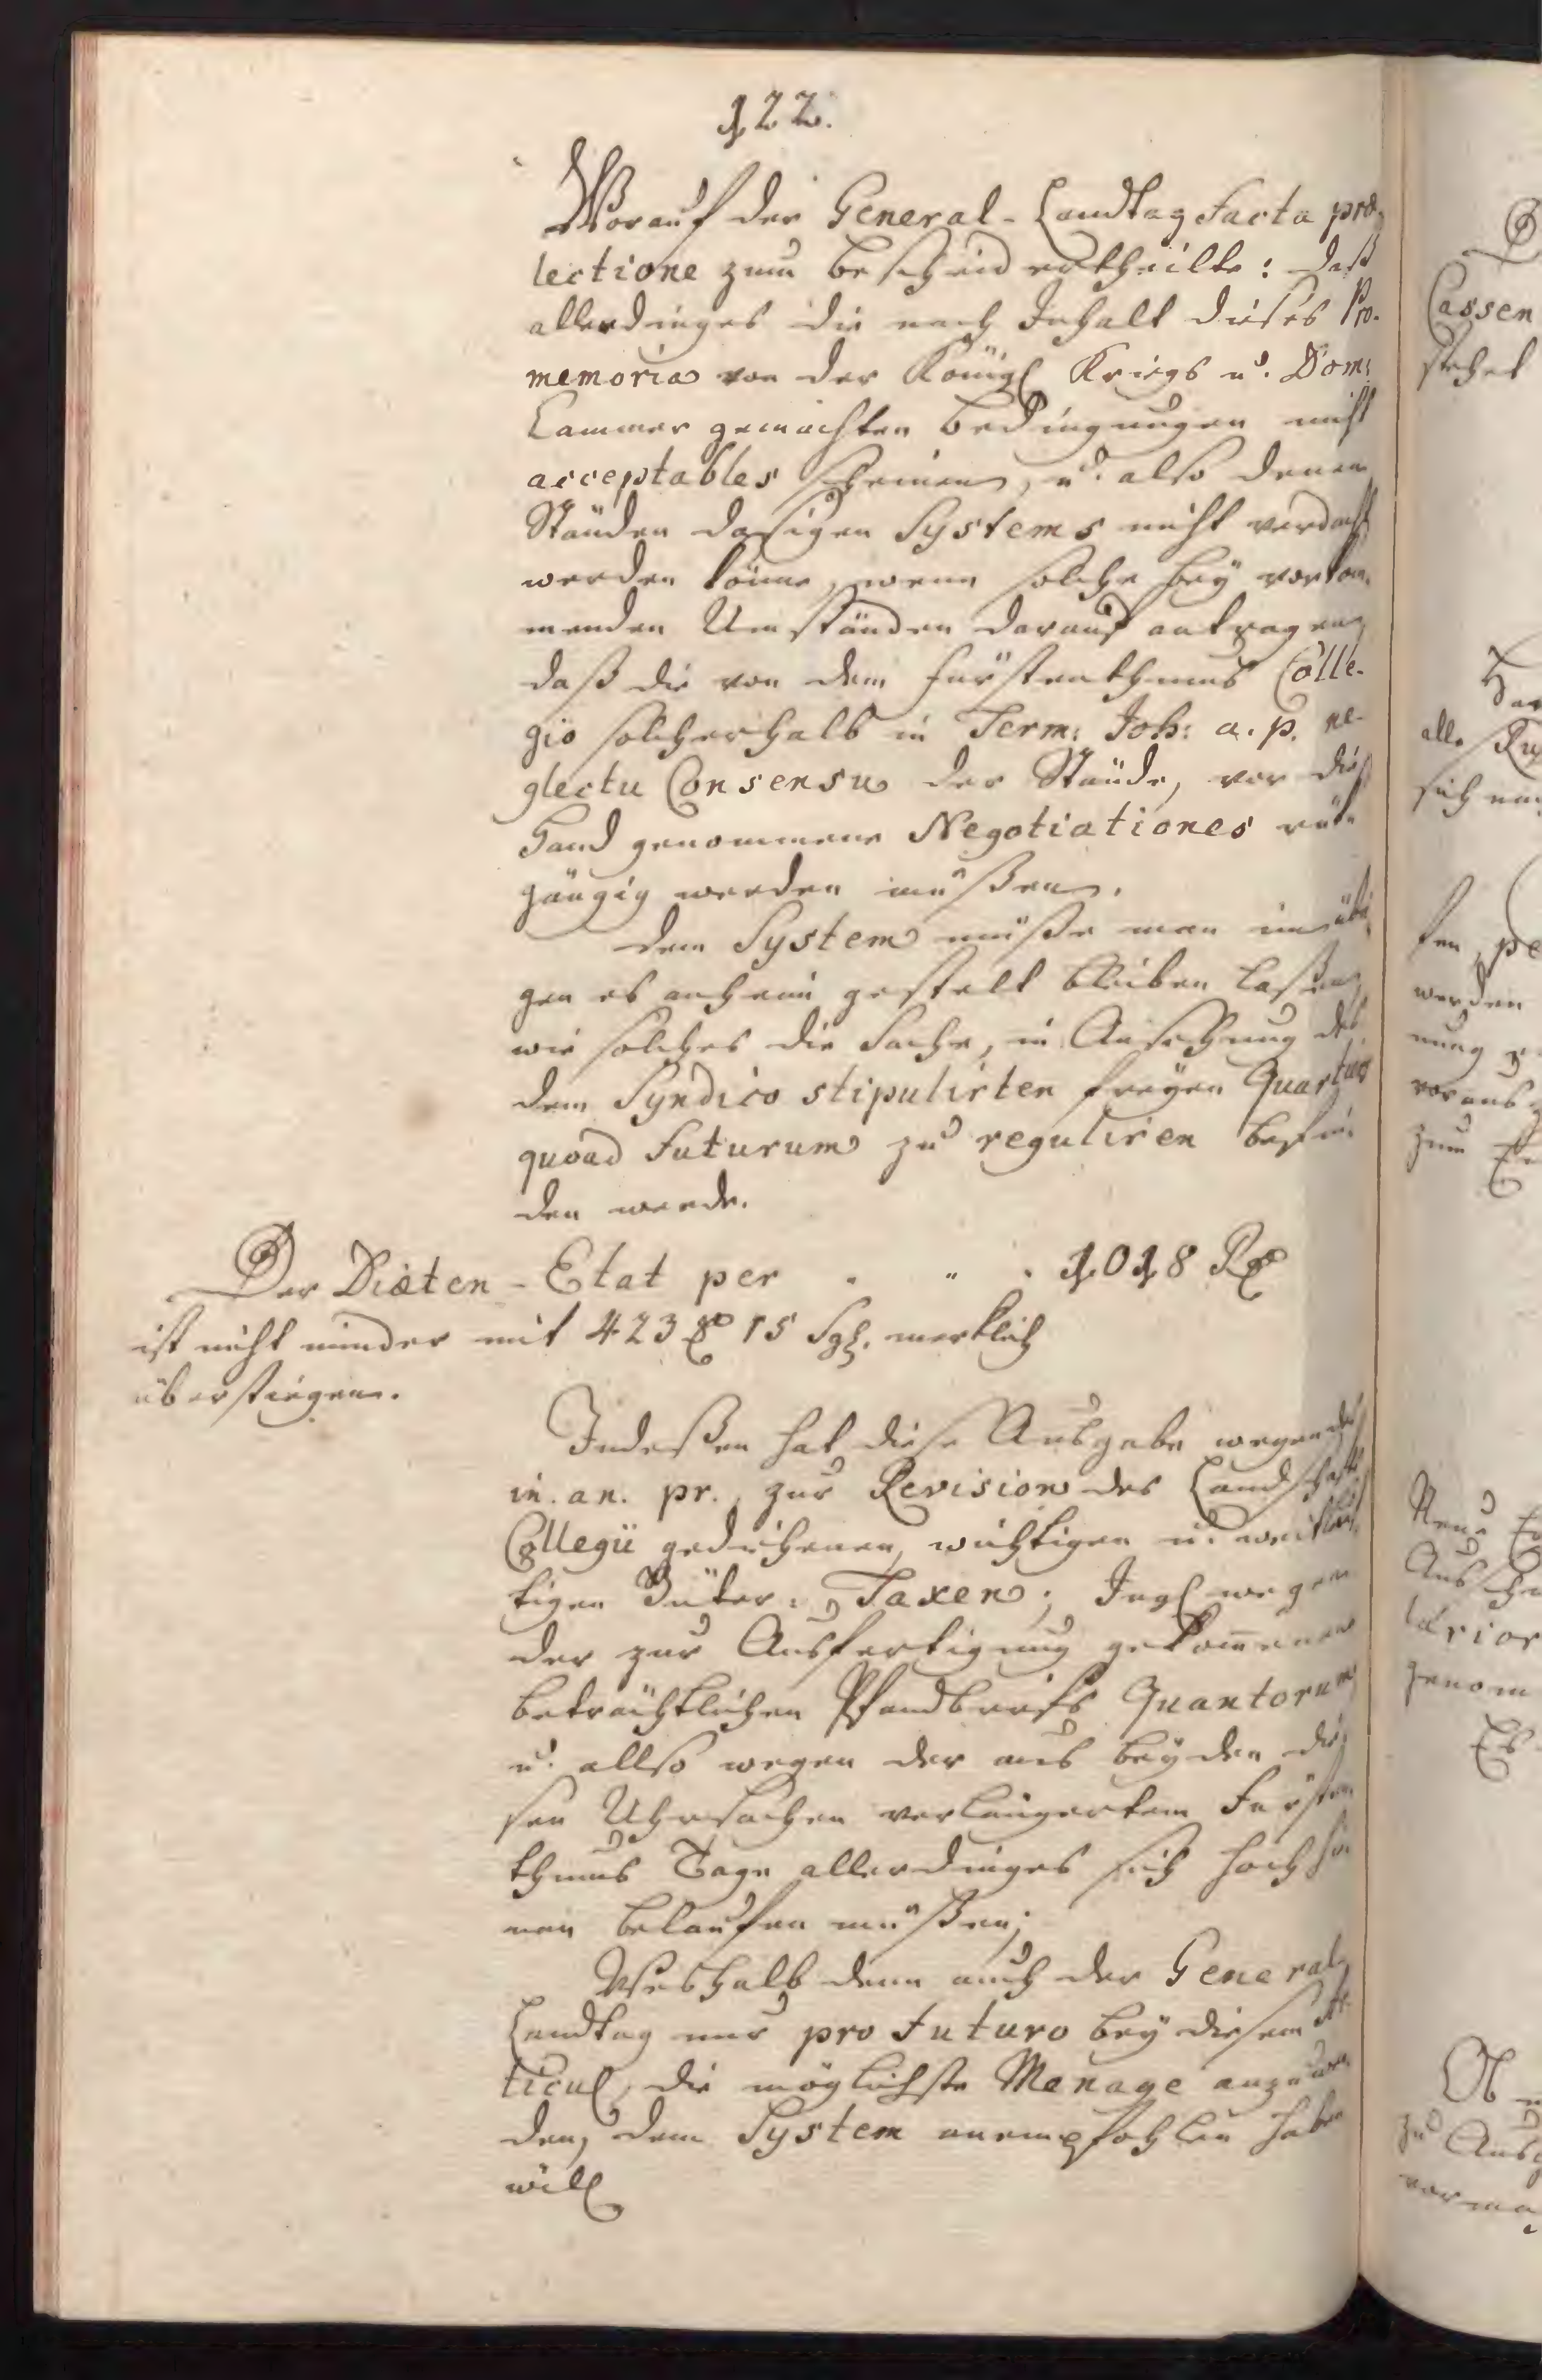 122.
Worauf der General-Landtag facta præ-
lectione zum Bescheid ertheilte: daß
allerdinges die nach Inhalt dieses Pro-
memoria von der Königl Kriegs u. Dom:
Cammer gemachten Bedingungen nicht
acceptables scheinen, u. also denen
Ständen dasigen Systems nicht verdacht
werden könne, wenn solche bey vorkom-
menden Umständen darauf antragen,
daß die von dem Fürstenthums Colle-
gio solcherhalb in Term: Joh: a. p. ne-
glectu Consensu der Stände, vor die
Hand genommene Negotiationes rük-
gängig werden müßen.
Dem System müße man im übri-
gen es anheim gestelt bleiben laßen,
wie solches die Sache, in Ansehung des
dem Syndico stipulirten freyen Quartirs
quoad futurum zu reguliren befin-
den werde.
Der Diäten-Etat per . " . 1018 Rx
ist nicht minder mit 423 x 15 Sgl. merklich
überstiegen.
Indeßen hat diese Ausgabe wegen der
in. an. pr. zur Revision des Landschafts
Collegii gediehenen, wichtigen u. weitläuf-
tigen Güter-Taxen; Ingl wegen
der zur Ausfertigung gekom̅enen
beträchtlichen Pfandbriefs Quantorum,
u. allso wegen der aus beyden die-
sen Uhrsachen verlängertem Fürsten-
thums Tage allerdinges sich hoch hin-
nan belaufen müßen;
Weshalb denn auch der General
Landtag nur pro futuro bey diesem Ar-
ticul, die möglichste Menage anzuwen-
den, dem System anempfohlen haben
will
Cassen
stehet
alle
sich
werden
zum
genom
Es
Ob